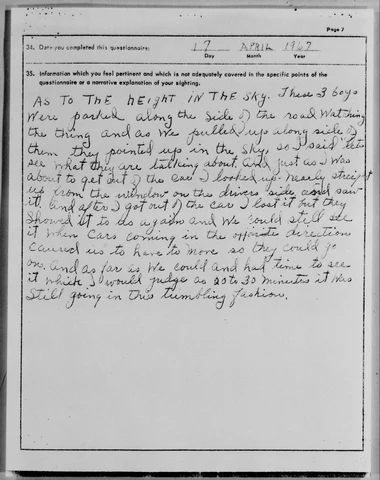 Page 7
34. Date you completed this questionnaire: 17 APRIL 1967
Day Month Year
35. Information which you feel pertinent and which is not adequately covered in the specific points of the
questionnaire or a narrative explanation of your sighting.
AS TO THE HEIGHT IN THE SKY. These 3 boys
Were parked along the side of the road Watching
the thing and as We pulled up along side of
them they pointed up in the sky, so I said let's
see what they are talking about. And just as I was
about to get out of the car I looked up nearly straight
up from the window on the drivers side and saw
it and after I got out of the car I lost it but they
showed it to me again and We could still see
it when cars coming in the opposite direction
caused us to have to move so they could go
on. And as far as We could and had time to see
it which I would judge as 20 to 30 minutes it was
Still going in this tumbling fashion.